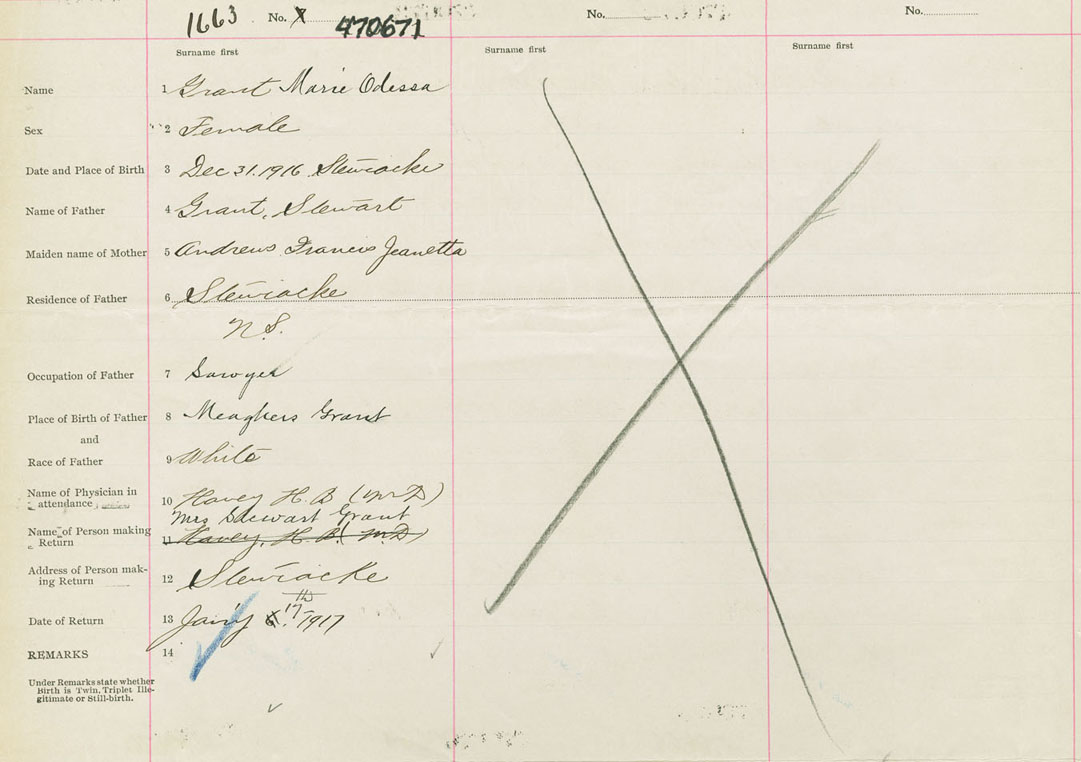 1663 No. X 470671 No. No.
Surname first Surname first Surname first
Name 1 Grant Marie Odessa
Sex 2 Female
Date and Place of Birth 3 Dec 31. 1916 Stewiacke
Name of Father 4 Grant, Stewart
Maiden name of Mother 5 Andrews Francis Jeanetta
Residence of Father 6 Stewiacke
N.S.
Occupation of Father 7 Sawyer
Place of Birth of Father 8 Meaghers Grant
and
Race of Father 9 White
Name of Physician in
attendance 10 Havey H. B (M D)
Mrs Stewart Grant
Name of Person making
Return 11 Havey, H. B. (M.D)
Address of Person mak-
ing Return 12 Stewiacke
Date of Return 13 Jan'y 17th 1917
REMARKS 14
Under Remarks state whether
Birth is Twin, Triplet Ille-
gitimate or Still-birth.